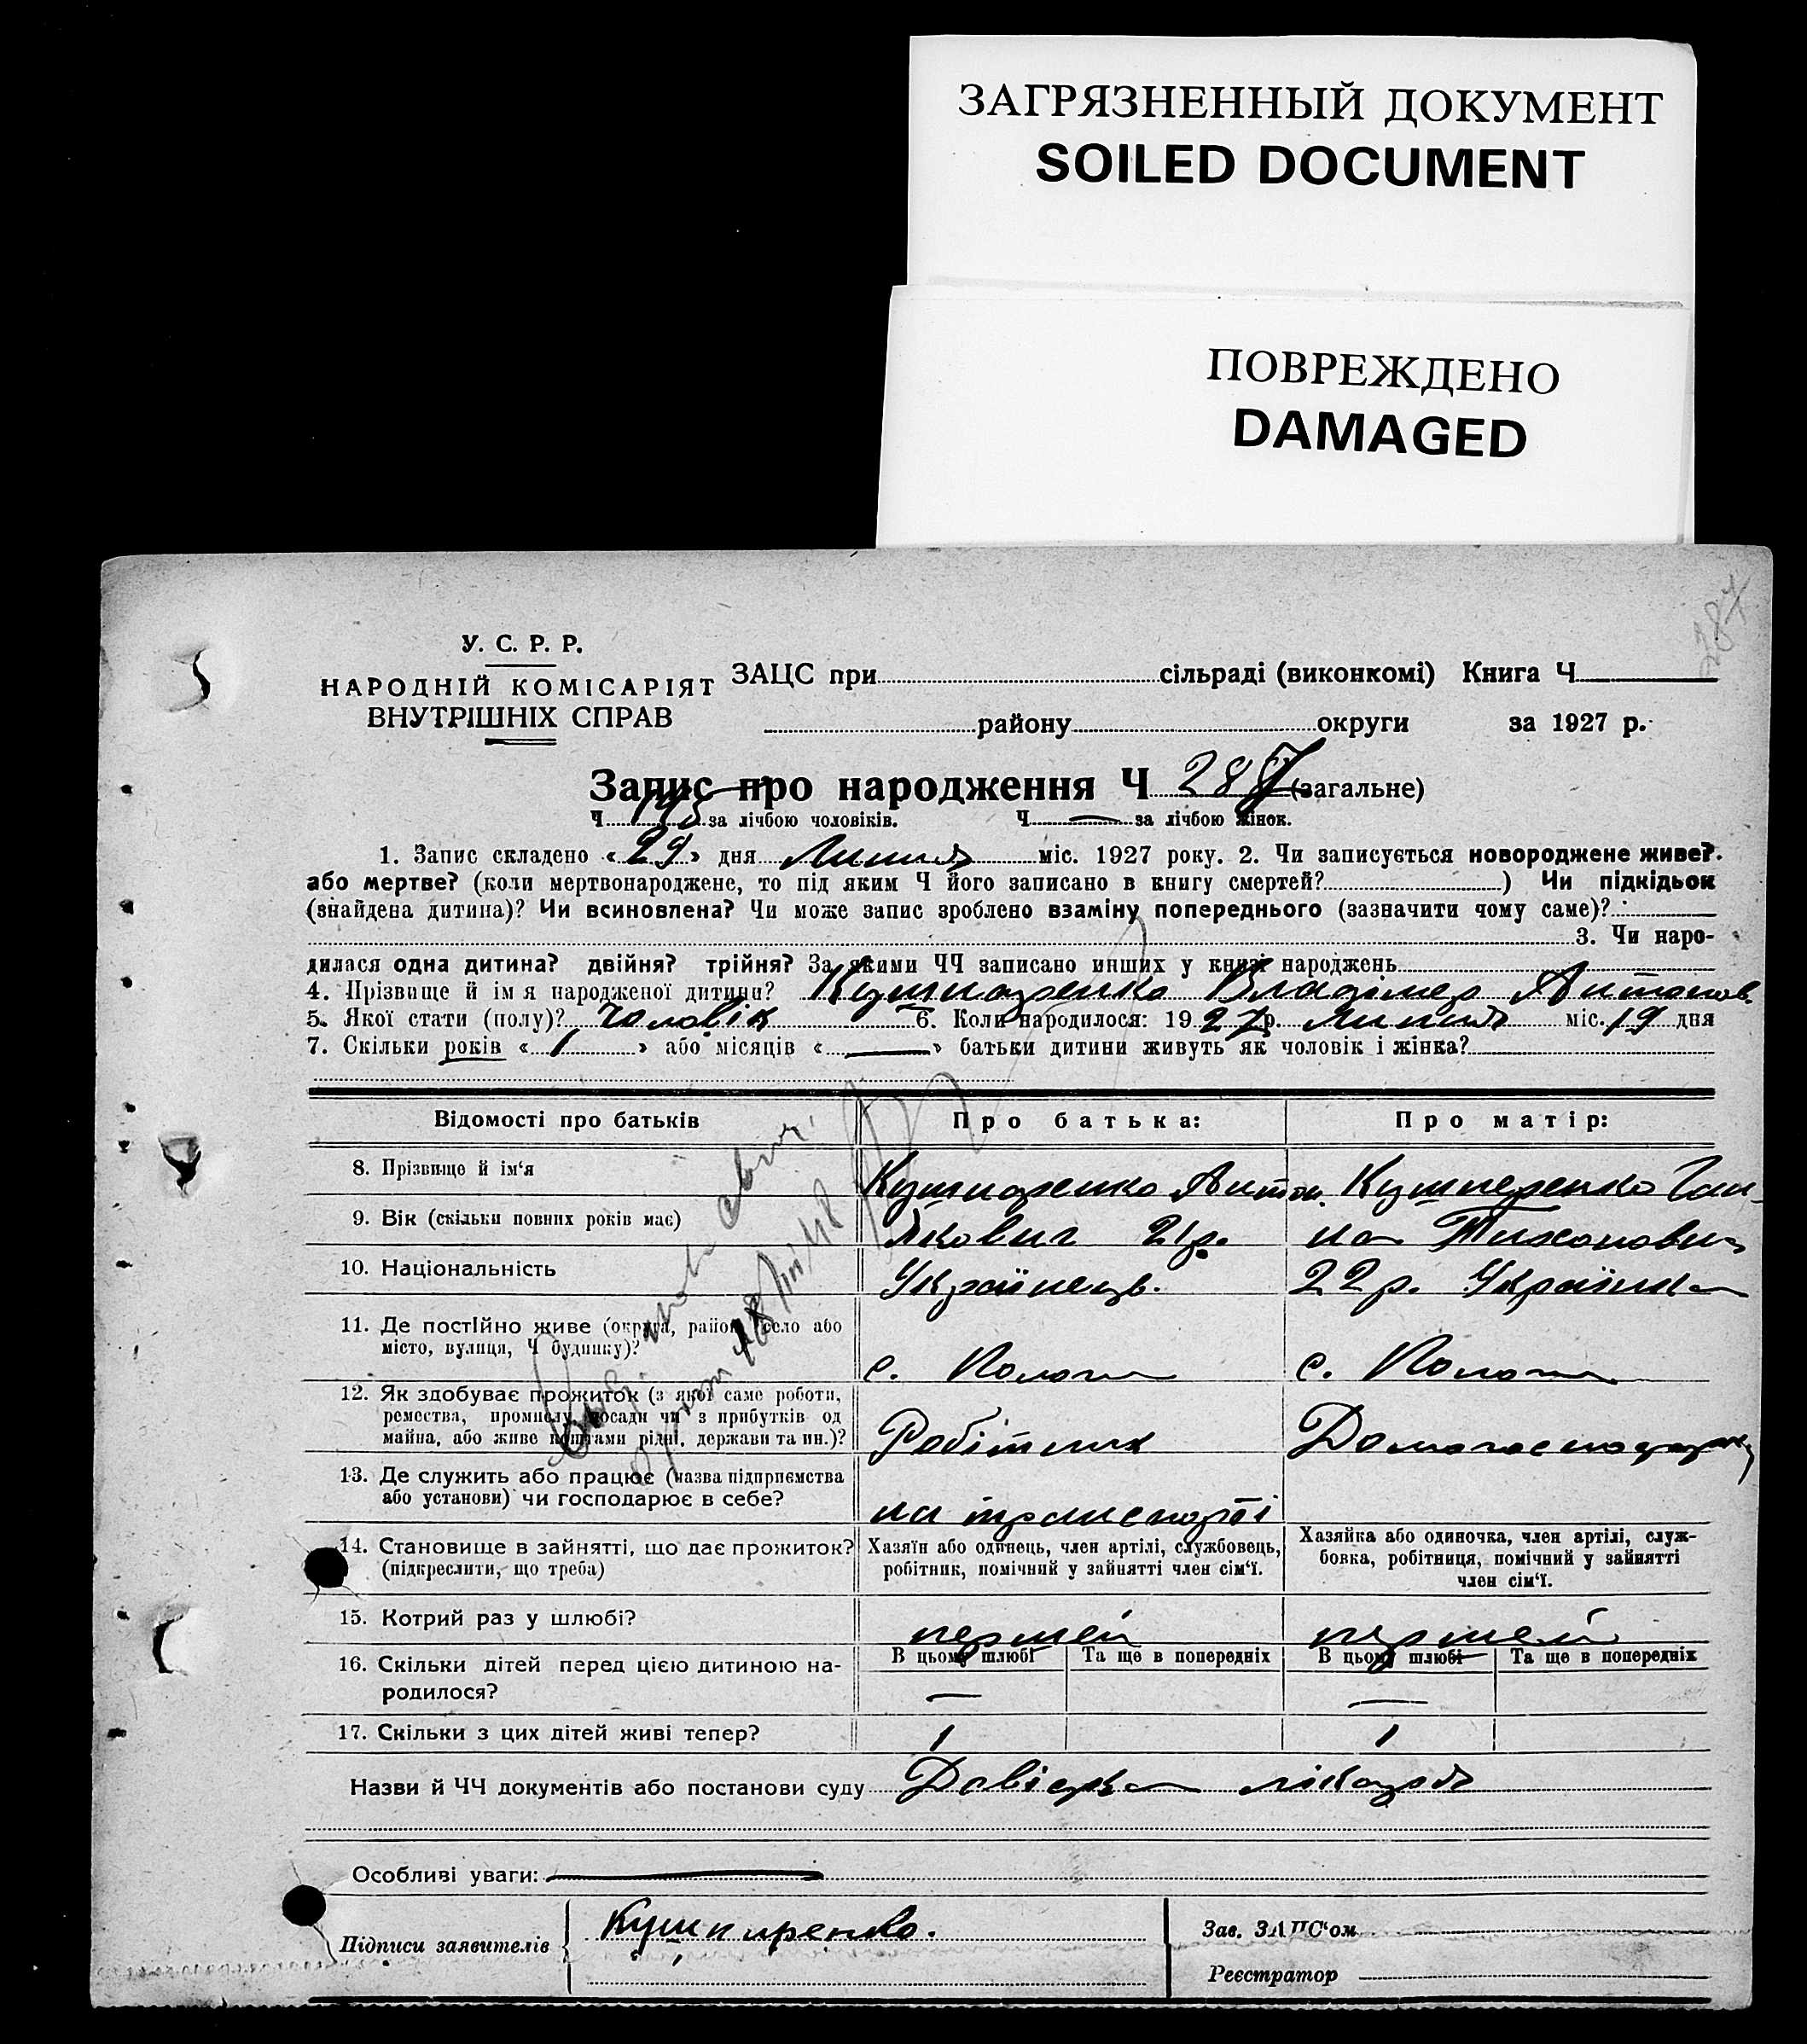 ЗАГРЯЗНЕННЫЙ ДОКУМЕНТ
SOILED DOCUMENT
ПОВРЕЖДЕНО
DAMAGED
287
У. С. Р. Р.
НАРОДНІЙ КОМІСАРІЯТ
ВНУТРІШНІХ СПРАВ
ЗАЦС при сільраді (виконкомі) Книга Ч
району округи за 1927 р.
Запис про народження Ч 287 (загальне)
Ч 145 за лічбою чоловіків. Ч — за лічбою жінок.
1. Запис складено «29» дня Липня міс. 1927 року. 2. Чи записується новороджене живе?
або мертве? (коли мертвонароджене, то під яким Ч його записано в книгу смертей?) Чи підкідьок
(знайдена дитина)? Чи всиновлена? Чи може запис зроблено взаміну попереднього (зазначити чому саме)?
3. Чи наро-
дилася одна дитина? двійня? трійня? За якими ЧЧ записано инших у книзі народжень
4. Прізвище й ім я народженої дитини? Кушнаренко Владімер Антонов.
5. Якої стати (полу)? Чоловік 6. Коли народилося: 1927 р. Липня міс. 19 дня
7. Скільки років « 1 » або місяців « — » батьки дитини живуть як чоловік і жінка?
Відомості про батьків Про батька: Про матір:
8. Прізвище й ім'я Кушнаренко Антон Кушнеренко Ган-
9. Вік (скільки повних років має) Якович 21р. на Тихоновна
10. Національність Українець. 22р. Українка
11. Де постійно живе (округа, район, село або
місто, вулиця, Ч будинку)? с. Пологи с. Пологи
12. Як здобуває прожиток (з якої саме роботи,
ремества, промислу, посади чи з прибутків од
майна, або живе коштами рідні, держави та ин.)? Робітник Домогосподарка
13. Де служить або працює (назва підприємства
або установи) чи господарює в себе? на транспорті
14. Становище в зайнятті, що дає прожиток?
(підкреслити, що треба)
Хазяїн або одинець, член артілі, службовець,
робітник, помічний у зайнятті член сім'ї.
Хазяйка або одиночка, член артілі, служ-
бовка, робітниця, помічний у зайнятті
член сім'ї.
15. Котрий раз у шлюбі? перший перший
16. Скільки дітей перед цією дитиною на-
родилося?
В цьому шлюбі Та ще в попередніх В цьому шлюбі Та ще в попередніх
— —
17. Скільки з цих дітей живі тепер? 1 1
Назви й ЧЧ документів або постанови суду Довідка лікаря
Особливі уваги: —
Підписи заявителів Кушнаренко.
Зав. ЗАЦС'ом
Реєстратор